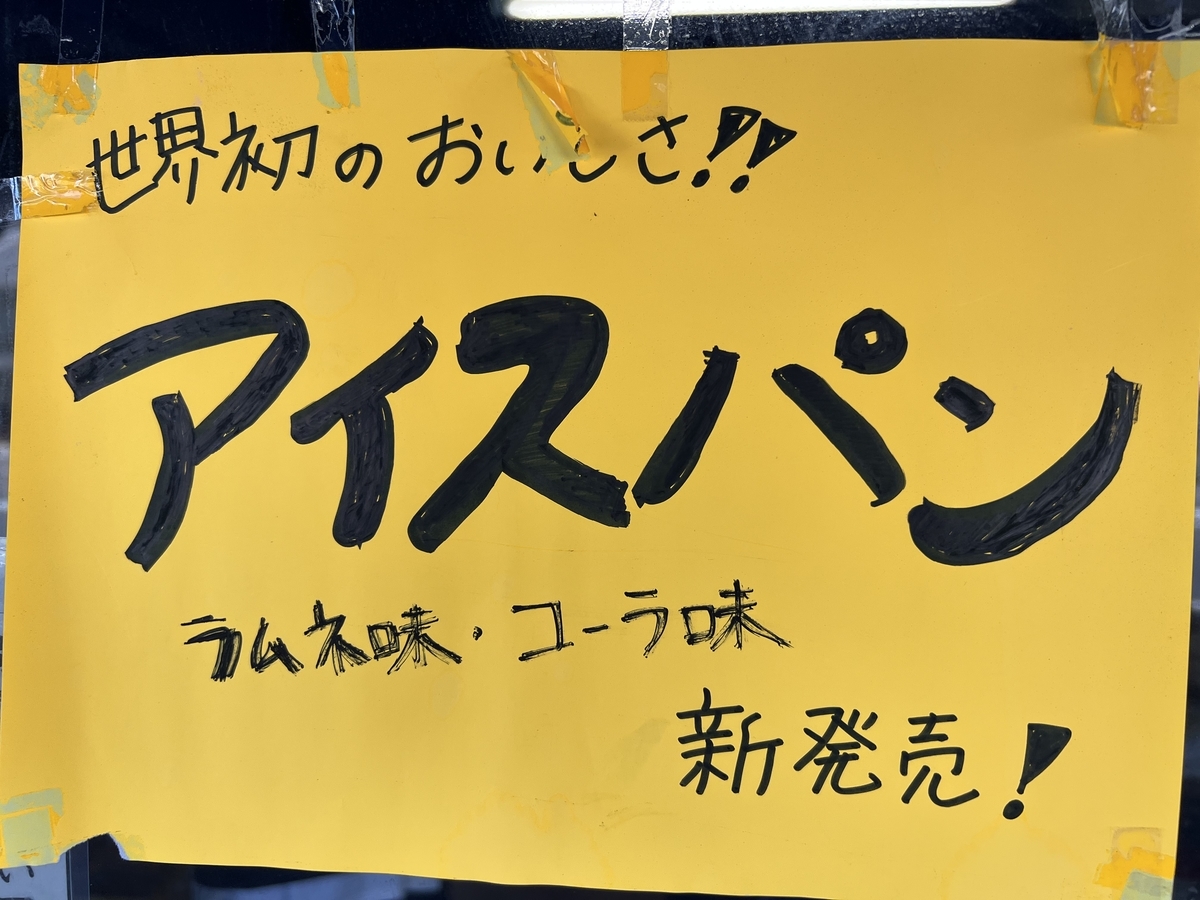 世界初のおいしさ!!
アイスパン
ラムネ味・コーラ味
新発売!